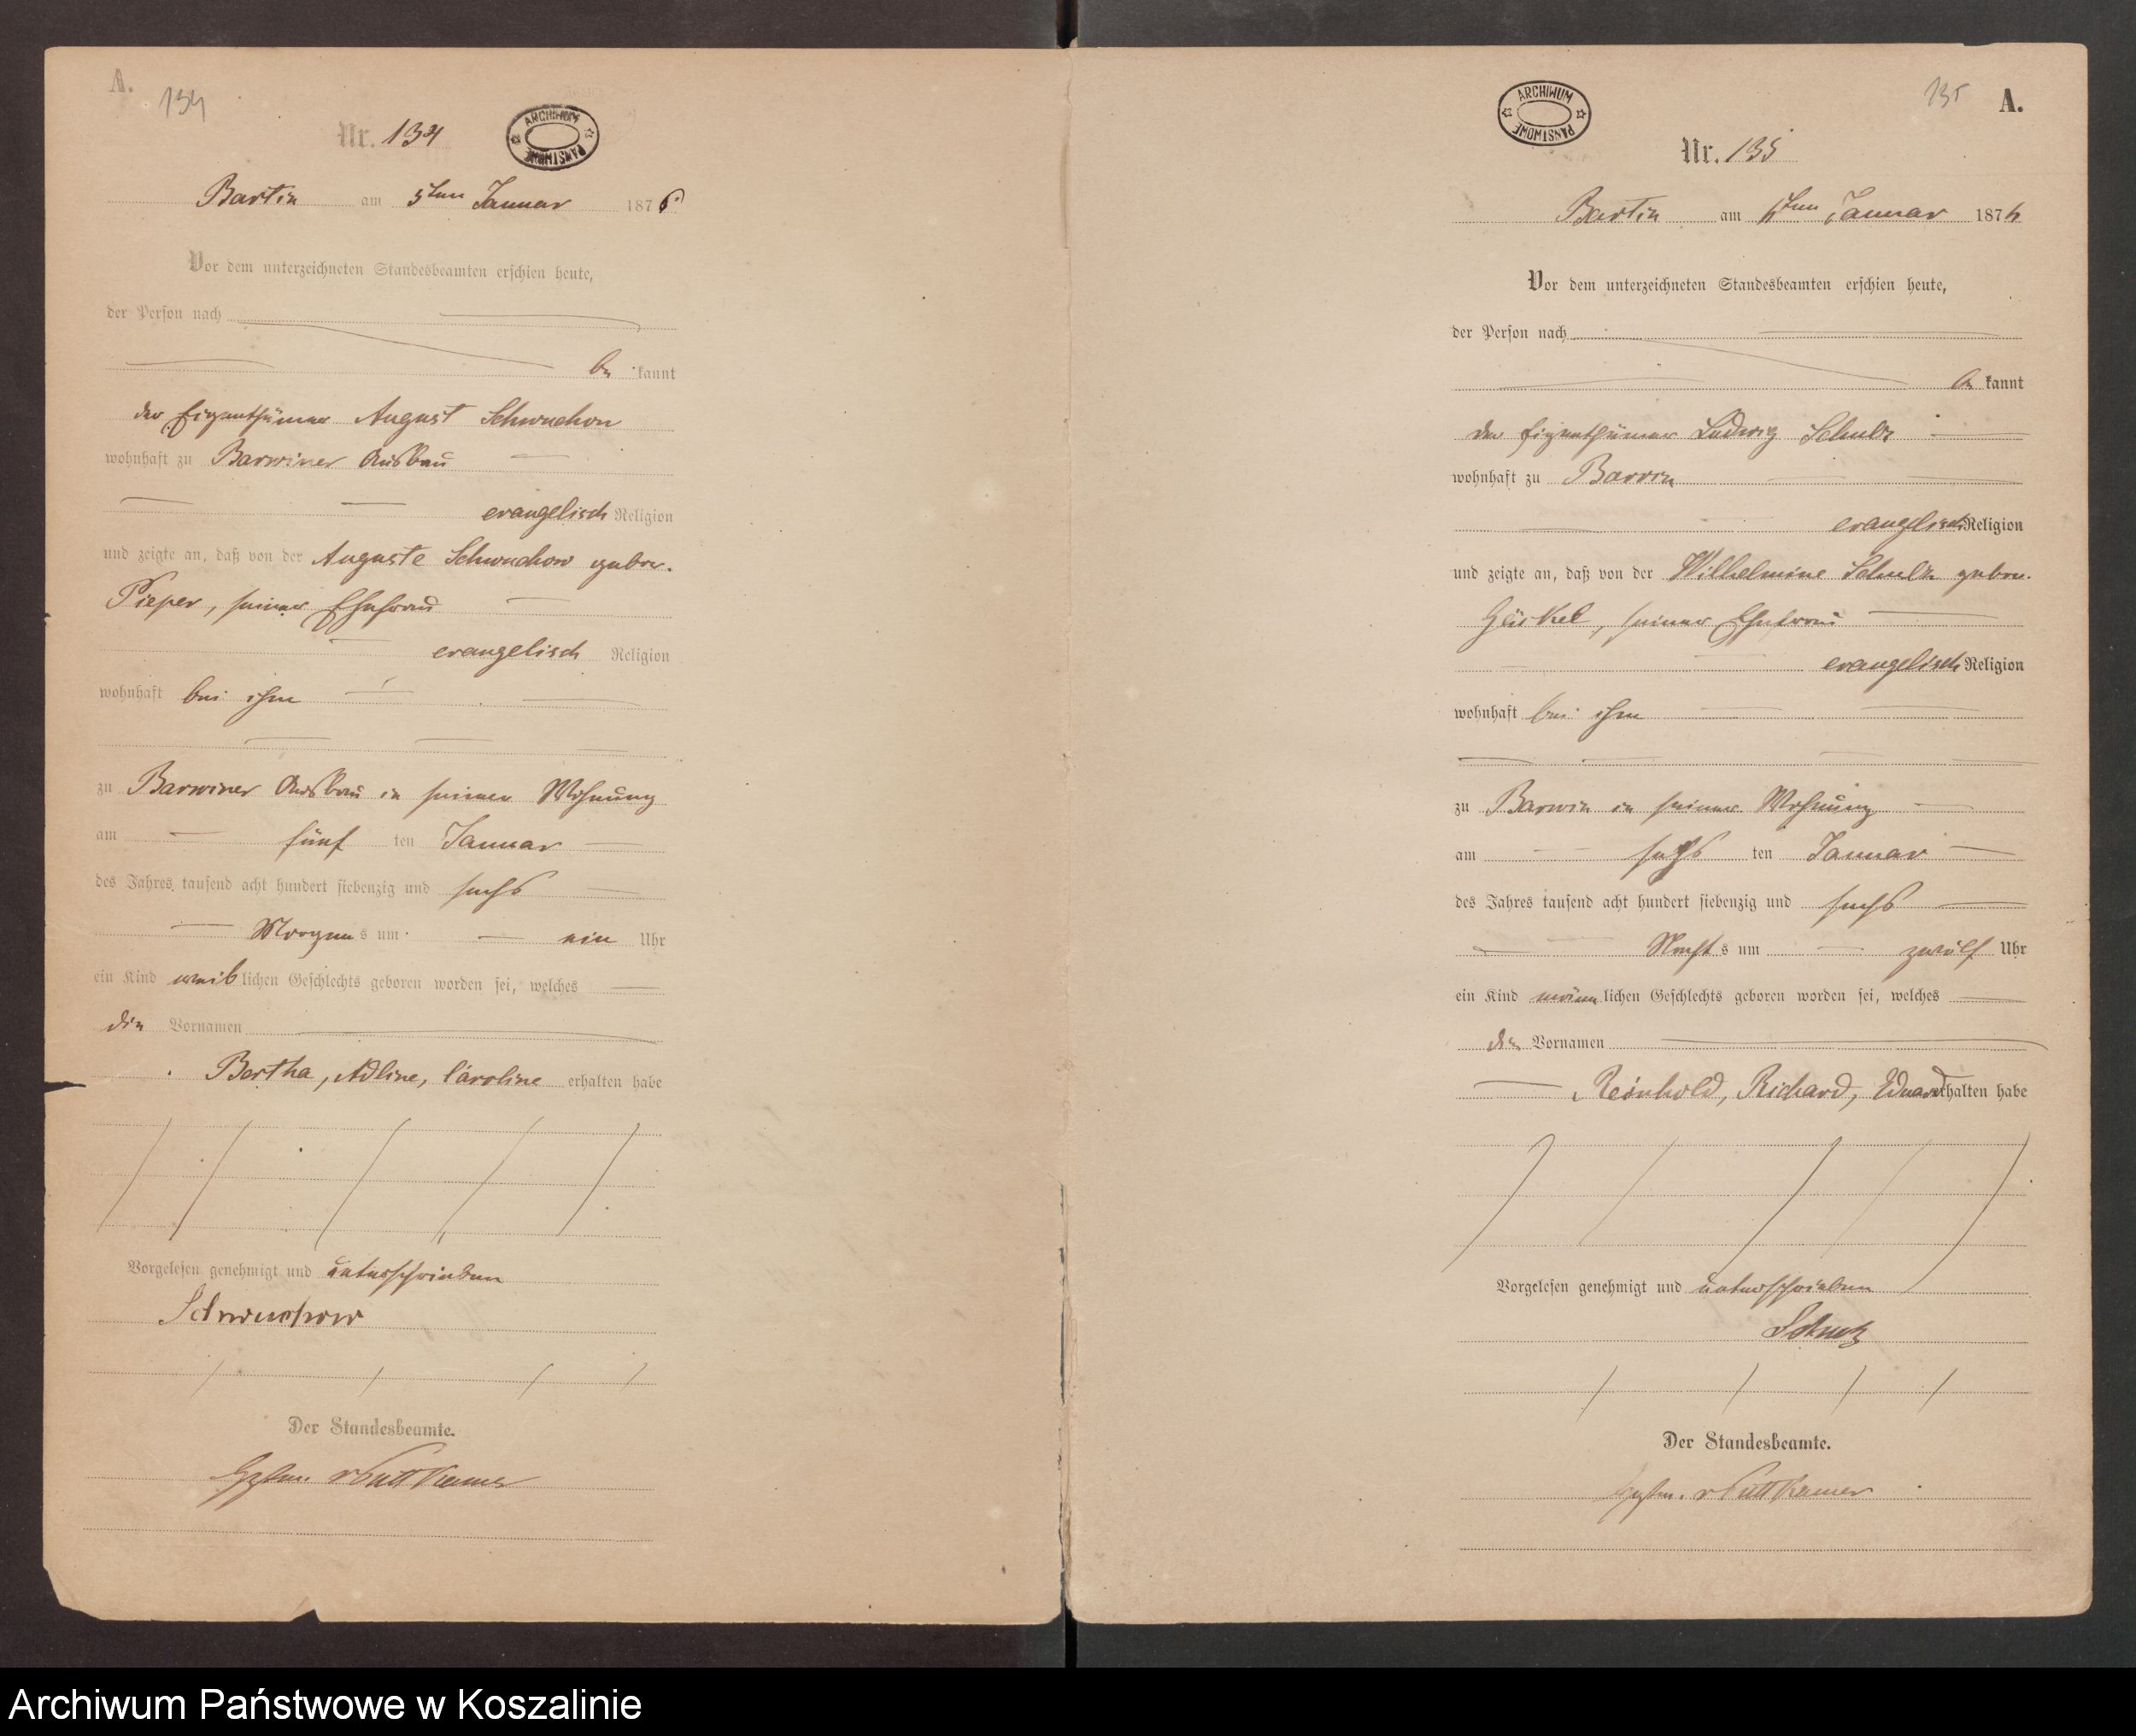 A.
134
Nr. 134
ARCHIWUM PAŃSTWOWE
Bartin am 5ten Januar 1876
Vor dem unterzeichneten Standesbeamten erschien heute,
der Person nach
be kannt
der Eigenthümer August Schwuchow
wohnhaft zu Barwiner Ausbau
evangelisch Religion
und zeigte an, daß von der Auguste Schwuchow gebor.
Pieper, seiner Ehefrau
evangelisch Religion
wohnhaft bei ihm
zu Barwiner Ausbau in seiner Wohnung
am fünf ten Januar
des Jahres tausend acht hundert siebenzig und sechs
Morgens um ein Uhr
ein Kind weiblichen Geschlechts geboren worden sei, welches
die Vornamen
Bertha, Adline, Caroline erhalten habe
Vorgelesen genehmigt und unterschrieben
Schwuchow
Der Standesbeamte.
v Puttkamer
135
A.
ARCHIWUM PAŃSTWOWE
Nr. 135
Bartin am 6ten Januar 1876
Vor dem unterzeichneten Standesbeamten erschien heute,
der Person nach
be kannt
der Eigenthümer Ludwig Schulz
wohnhaft zu Barvin
evangelisch Religion
und zeigte an, daß von der Wilhelmine Schulz gebor.
seiner Ehefrau
evangelisch Religion
wohnhaft bei ihm
zu Barwin in seiner Wohnung
am sechs ten Januar
des Jahres tausend acht hundert siebenzig und sechs
Nachts um zwölf Uhr
ein Kind männlichen Geschlechts geboren worden sei, welches
die Vornamen
Reinhold, Richard, Eduard erhalten habe
Vorgelesen genehmigt und unterschrieben
Schulz
Der Standesbeamte.
v Puttkamer
Archiwum Państwowe w Koszalinie